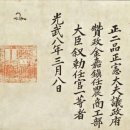 正二品正憲大夫議政府
贊政金嘉鎭任農商工部
大臣敍勅任官一等者
光武八年三月八日